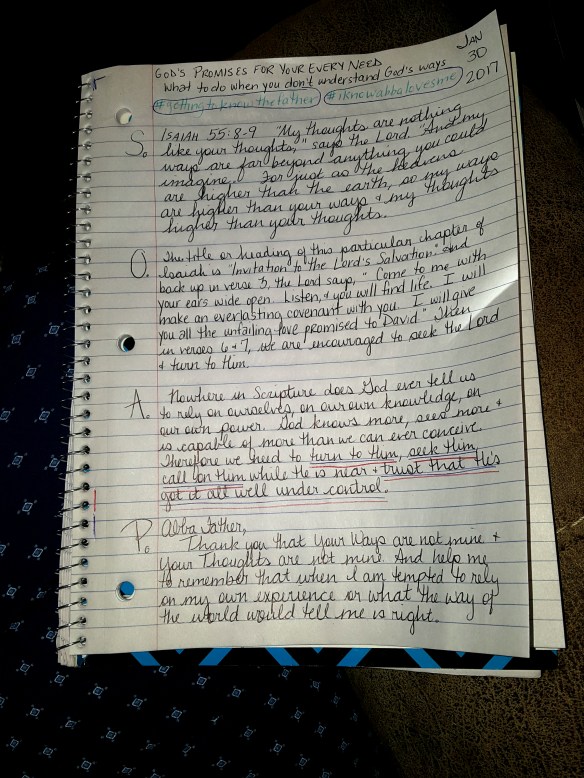 GOD'S PROMISES FOR YOUR EVERY NEED
What to do when you don't understand God's ways
#gettingtoknowthefather #iknowabbalovesme
JAN
30
2017
S. ISAIAH 55:8-9 "My thoughts are nothing
like your thoughts," says the Lord. "And my
ways are far beyond anything you could
imagine. For just as the heavens
are higher than the earth, so my ways
are higher than your ways & my thoughts
higher than your thoughts.
O. The title or heading of this particular chapter of
Isaiah is "Invitation to the Lord's Salvation" and
back up in verse 3, the Lord says, "Come to me with
your ears wide open. Listen, & you will find life. I will
make an everlasting covenant with you. I will give
you all the unfailing love promised to David." Then
in verses 6 & 7, we are encouraged to seek the Lord
& turn to Him.
A. Nowhere in Scripture does God ever tell us
to rely on ourselves, on our own knowledge, on
our own power. God knows more, sees more &
is capable of more than we can ever conceive.
Therefore we need to turn to Him, seek Him,
call on Him while He is near & trust that He's
got it all well under control.
P. Abba Father,
Thank you that Your Ways are not mine &
Your Thoughts are not mine. And help me
to remember that when I am tempted to rely
on my own experience or what the way of
the world would tell me is right.